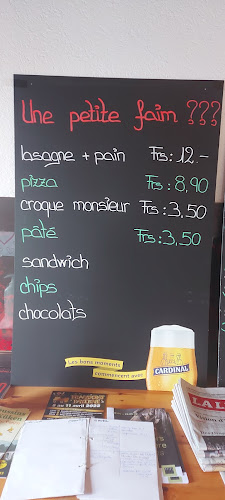 Une petite faim ???
lasagne + pain Frs : 12.-
pizza Frs : 8,90
croque monsieur Frs : 3,50
pâté Frs : 3,50
sandwich
chips
chocolats
Les bons moments
commencent avec
CARDINAL